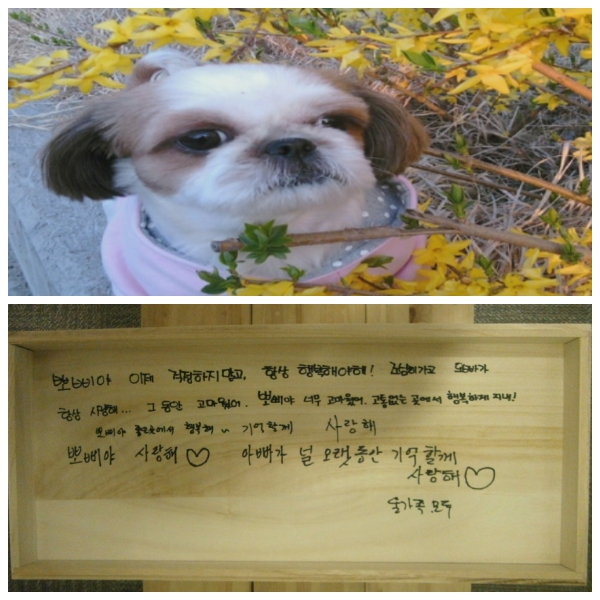 뽀삐야 이제 걱정하지말고, 항상 행복해야해! 조심해가고 오빠가
항상 사랑해... 그 동안 고마웠어. 뽀삐야 너무 고마웠어. 고통없는 곳에서 행복하게 지내!
뽀삐야 좋은곳에서 행복해~ 기억할께 사랑해
뽀삐야 사랑해♡ 아빠가 널 오랫동안 기억할께
사랑해♡
울가족 모두